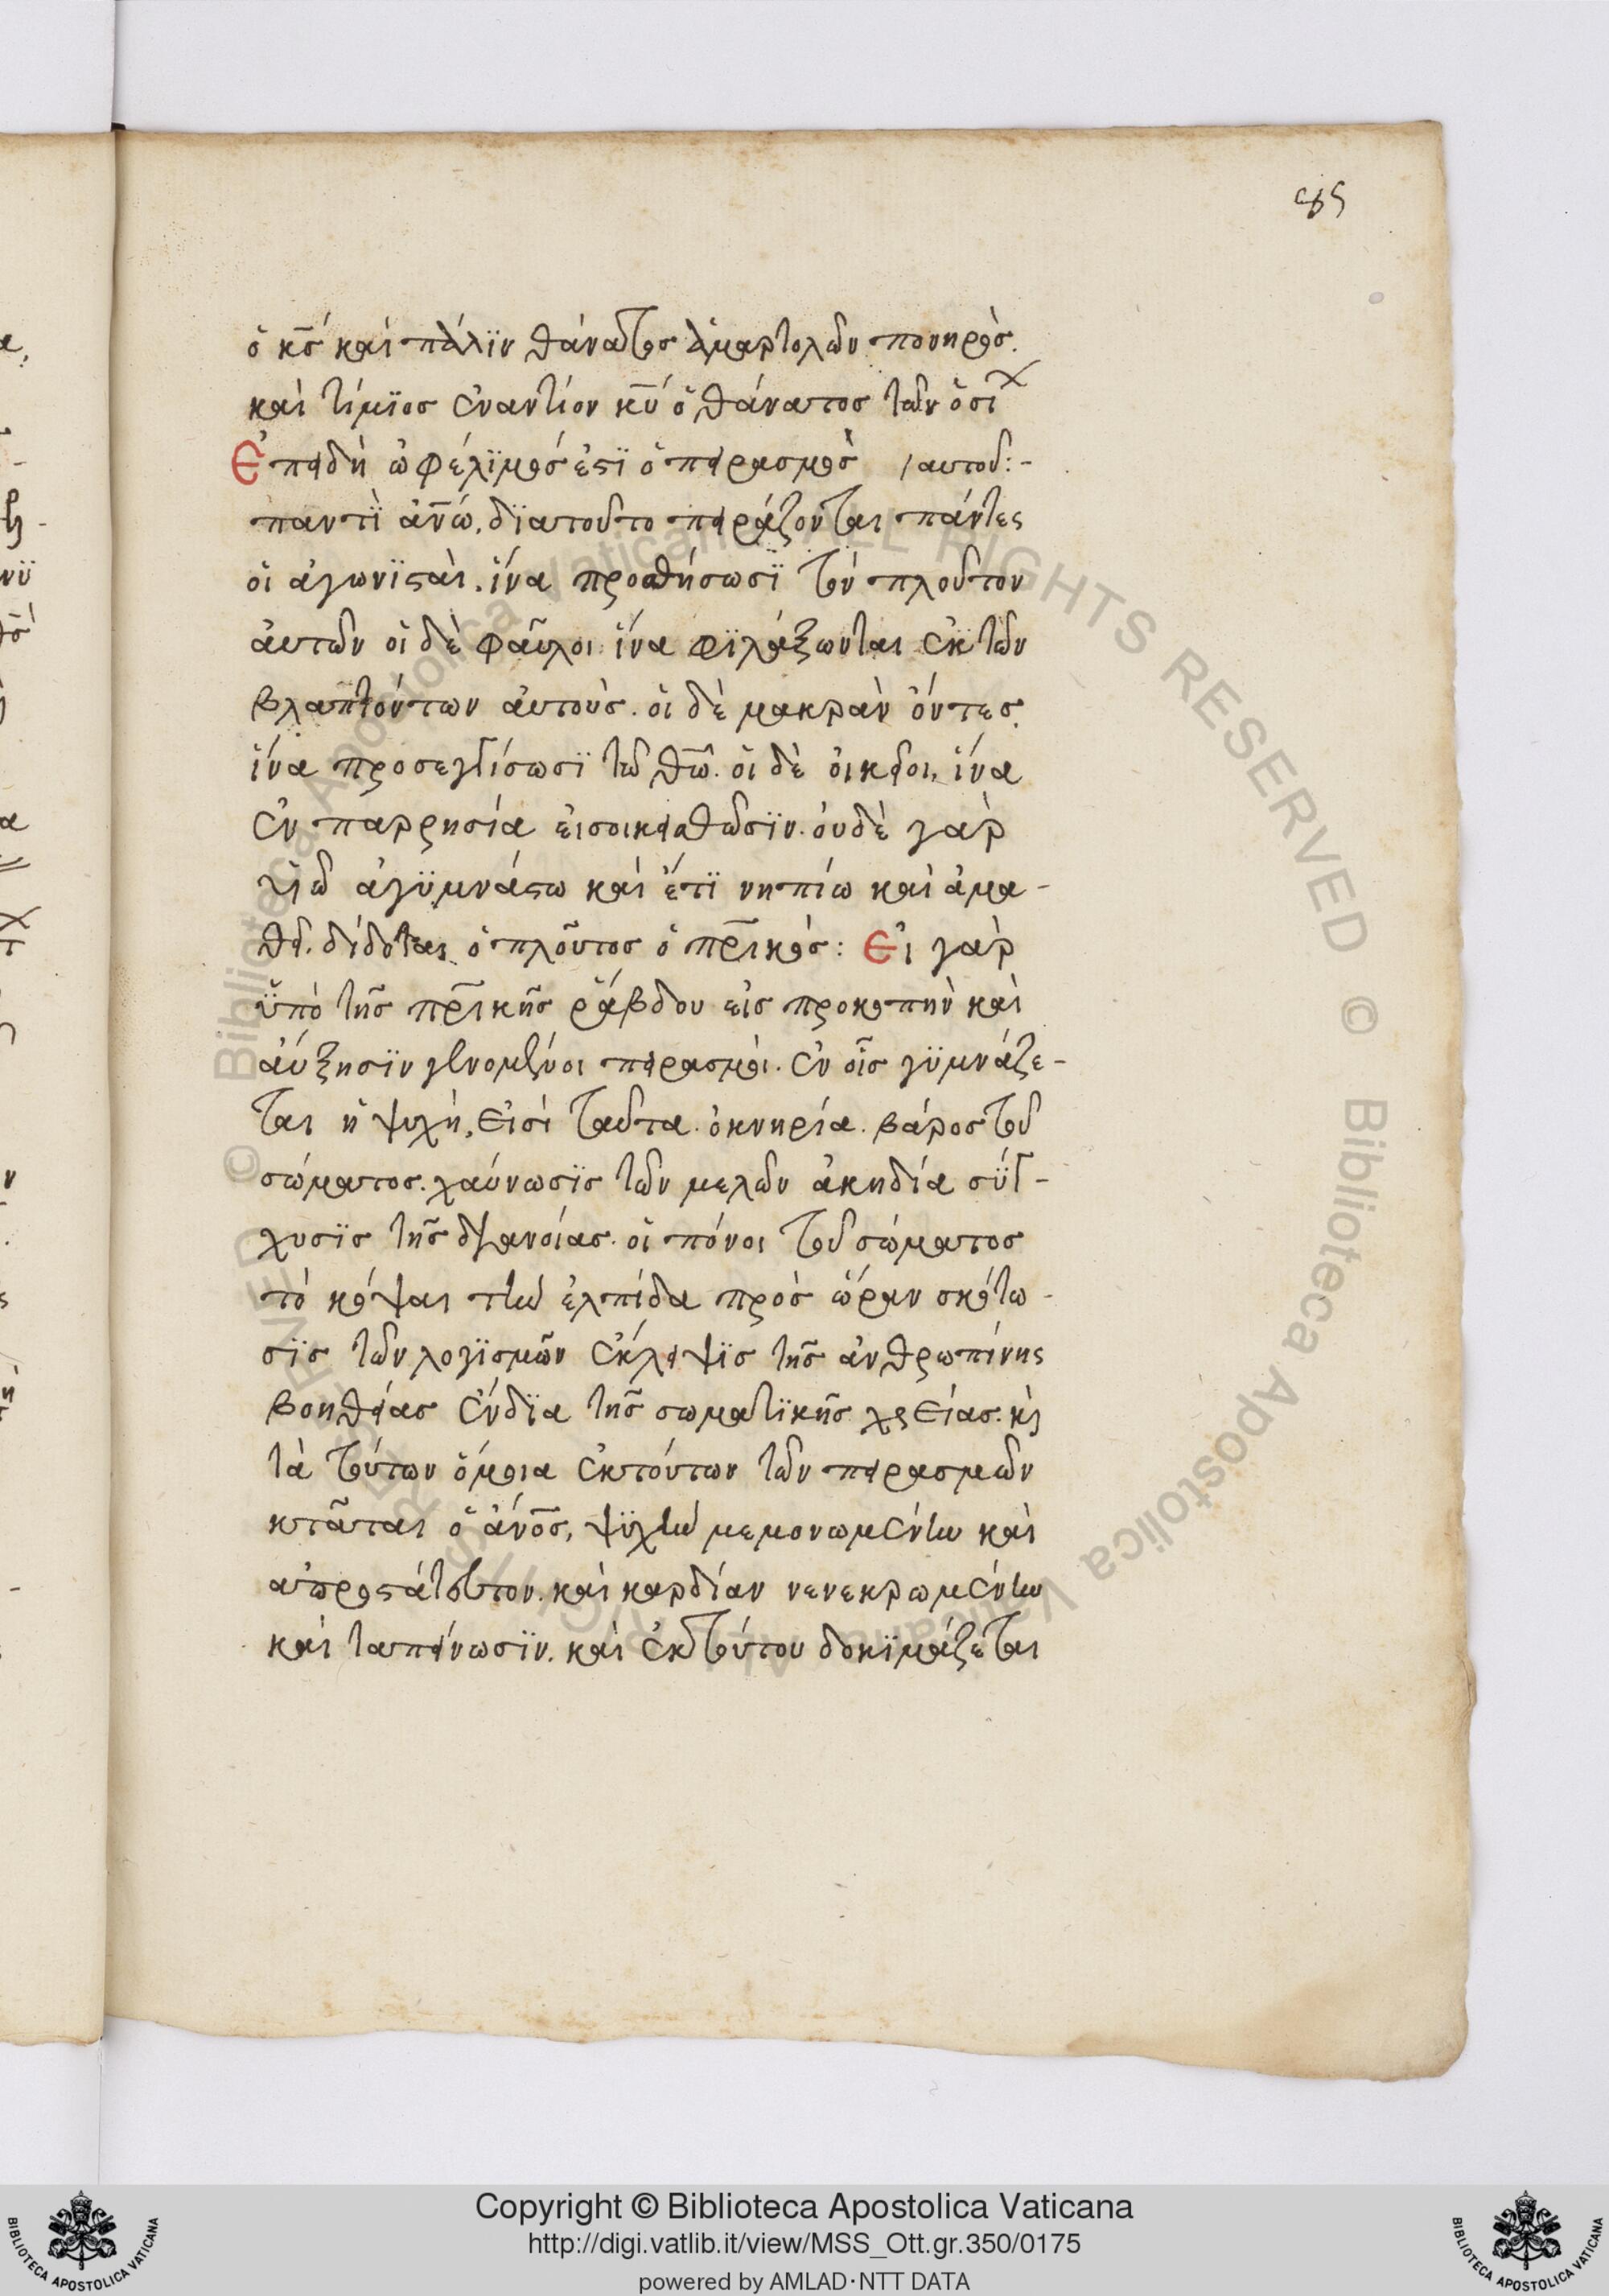 ὁ κ̅ς́ καὶ πάλϊν θάνατος ἁμαρτολῶν πονηρὸς.
καὶ τίμϊος ἐναντίον κ̅ύ ὁ θάνατος τῶν ὁσί
Ἐπειδὴ ὠφέλϊμος ἐστϊ ὁ πειρασμὸς / αυτοῦ:-
παντϊ ἀν̅ώ. δϊατοῦτο πειράζονται πάντες
οἱ ἀγωνϊσταὶ. ἵνα προσθήσωσϊ τὸν πλοῦτον
ἀυτῶν οἱ δὲ φαῦλοι ἵνα φϊλάξωνται ἐκ τῶν
βλαπτόντων ἀυτοὺς. οἱ δὲ μακρὰν ὄντες
ἵνα προσεγγίσωσϊ τῶ θ̅ῶ. οἱ δὲ ὀικεῖοι, ἵνα
ἐν παρρησία ἐισοικειαθῶσϊν. ὀυδὲ γὰρ
ϋἱῶ ἀγϋμνάστω καὶ ἔτϊ νηπίω καὶ ἀμα-
θεῖ. δίδοται ὁ πλοῦτος ὁ π̅ρ̅ικός: Εἰ γὰρ
ὑπὸ τῆς π̅ρ̅ικῆς ῥάβδου εἰς προκοπὴν καὶ
ἀύξησϊν γενομένοι πειρασμοὶ. ἐν οἷς γϋμνάζε-
ται ἡ ψυχὴ, εἰσὶ ταῦτα. ὀκνηρία. βάρος τοῦ
σώματος. χαύνωσϊς τῶν μελῶν ἀκηδία σϋγ-
χυσϊς τῆς διανοίας. οἱ πόνοι τοῦ σώματος
τὸ κόψαι τὴν ἐλπίδα πρὸς ὥραν σκότω-
σϊς τῶν λογϊσμῶν ἐκλειψϊς τῆς ἀνθρωπίνης
βοηθείας ἐνδϊα τῆς σωματϊκῆς χρείας. κὶ
τὰ τούτων ὅμοια ἐκτούτων τῶν πειρασμῶν
κτᾶται ὁ ἀν̅ο̅ς, ψϋχὴν μεμονωμένην καὶ
απροστάτευτον. καὶ καρδίαν νενεκρωμένην
καὶ ταπείνωσϊν. καὶ ἐκ τούτου δοκϊμάζεται
Copyright © Biblioteca Apostolica Vaticana
http://digi.vatlib.it/view/MSS_Ott.gr.350/0175
powered by AMLAD·NTT DATA